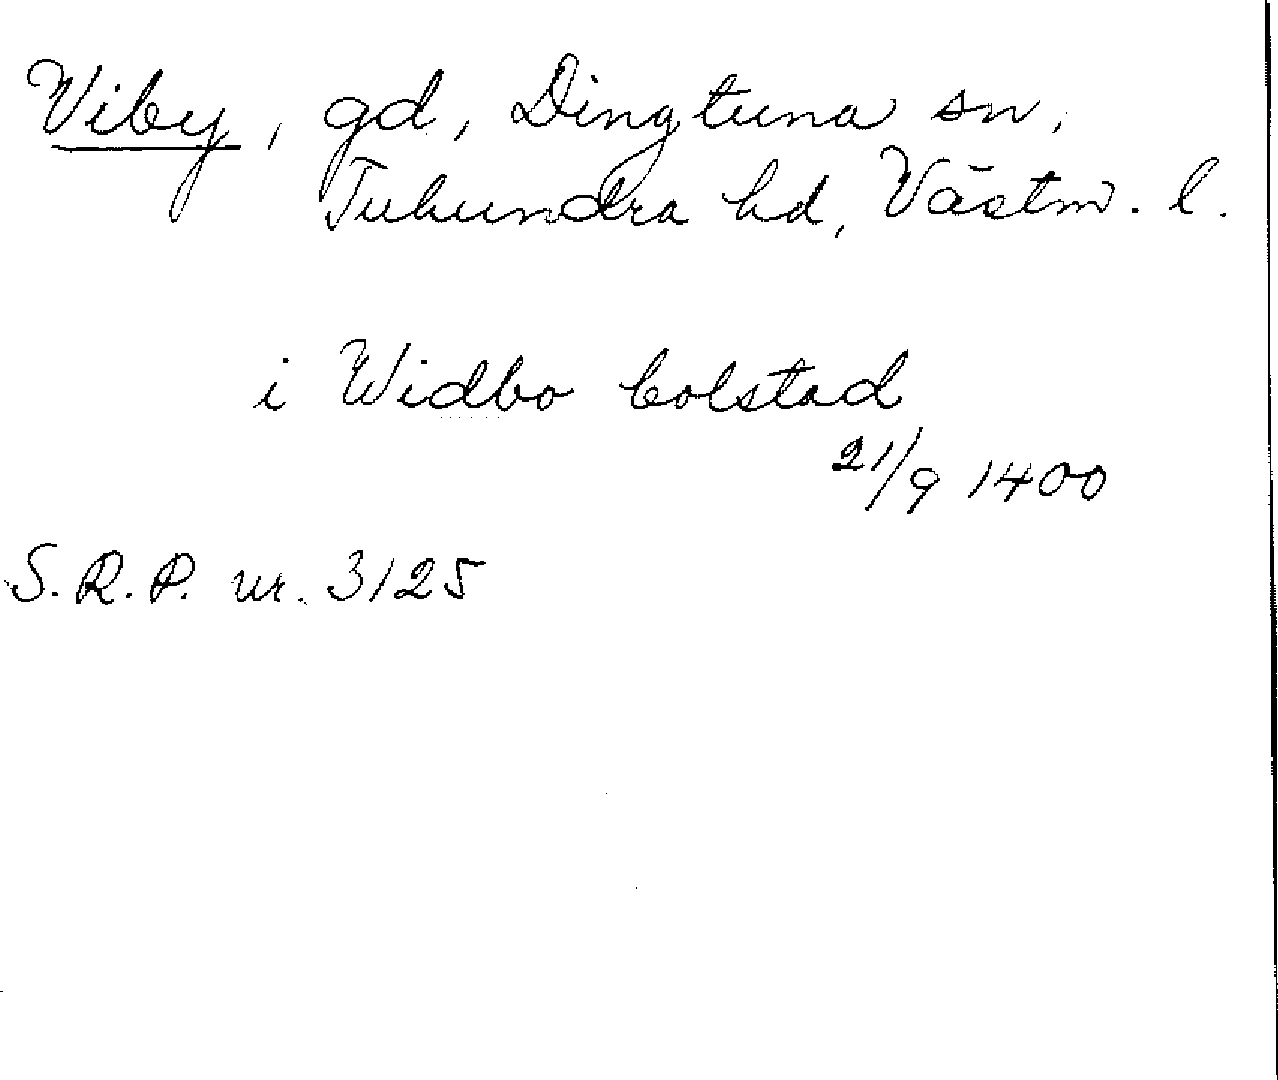 Viby, gd, Dingtuna sn,
Tuhundra hd, Västm. l.
i Widbo bolstad
21/9 1400
S.R.P. nr. 3125